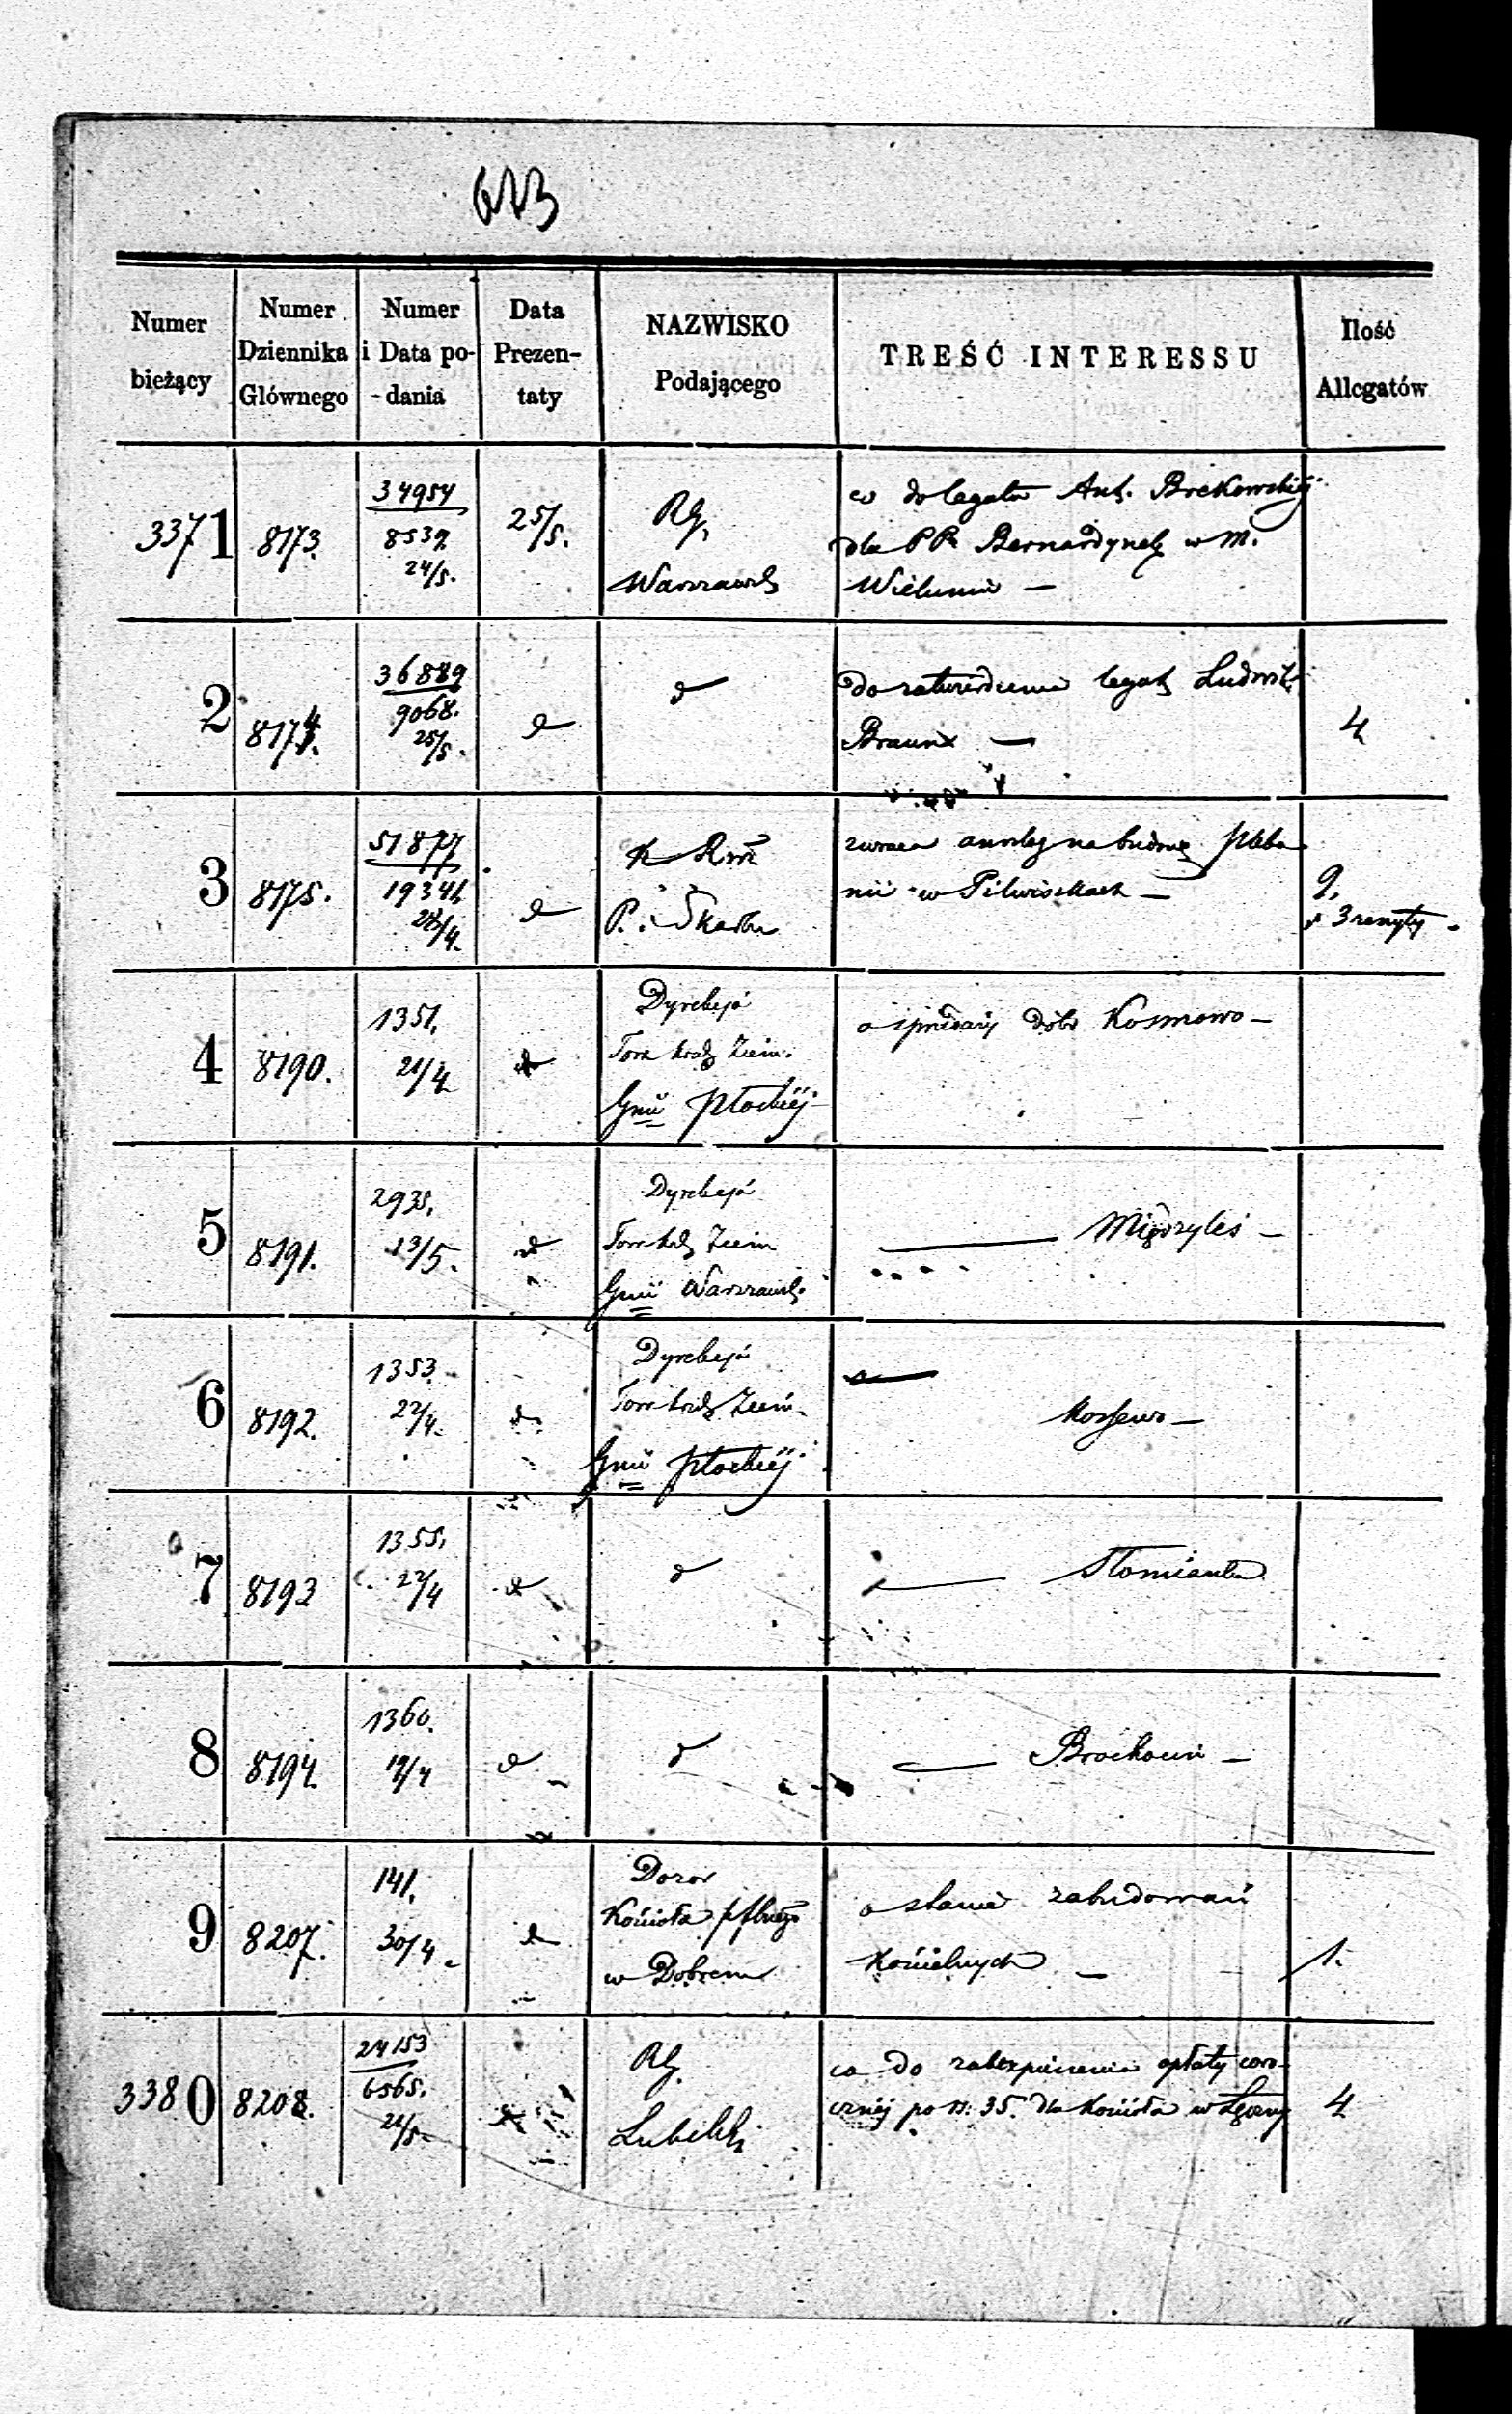 623
Numer bieżący
Numer Dziennika Głównego
Numer i Data podania
Data Prezentaty
NAZWISKO Podającego
TREŚĆ INTERESSU
Ilość Allegatów
3371
8173.
34954
8539
24/5.
25/5.
RG.
Warszawsk
co do legatu Ant.
dla PP. Bernardynek w M.
Wieluniu —
2
8174.
36889
9068.
25/5.
d
d
do zatwierdzenia legat Ludwik
Braun —
4
3
8175.
51877
19341
d
K
P. i Skarbu
zwraca anszlag na budowę pleba
nii w Pilwiszkach —
9.
4
8190.
1351.
21/4
d
Dyrekcja
Tow. Kred. Ziem.
Gnii Płockiéj
o sprzedaży dóbr Kosmowo —
5
8191.
2935.
13/5.
d
Dyrekcja
Tow. Kred. Ziem
Gnii Warszawsk.
Międzyleś —
6
8192.
1353.
22/4.
d
Dyrekcja
Tow. Kred. Ziem.
Gnii Płockiéj
7
8193
1355.
22/4
d
d
8
8194
1360.
19/4
d
d
9
8207.
141.
30/4.
d
Dozor
Kościoła
w Dobrem
o stanie zabudowań
Kościelnych —
1.
3380
8208.
24153
6565.
d
RG.
Lubelski
co do zabezpieczenia opłaty coro-
cznéj po rs. 35. dla Kościoła w
4